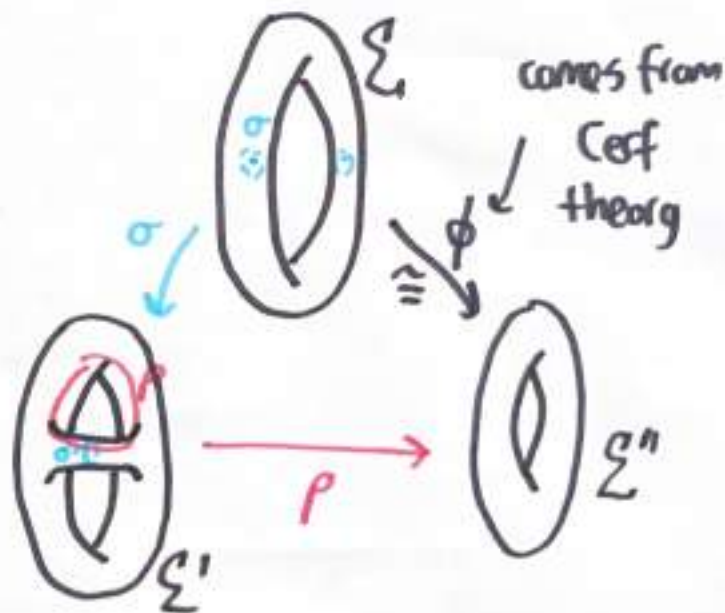 Σ
comes from
Cerf
theorg
σ
σ
ϕ
≅
ρ
σ
ρ
Σ'
Σ"